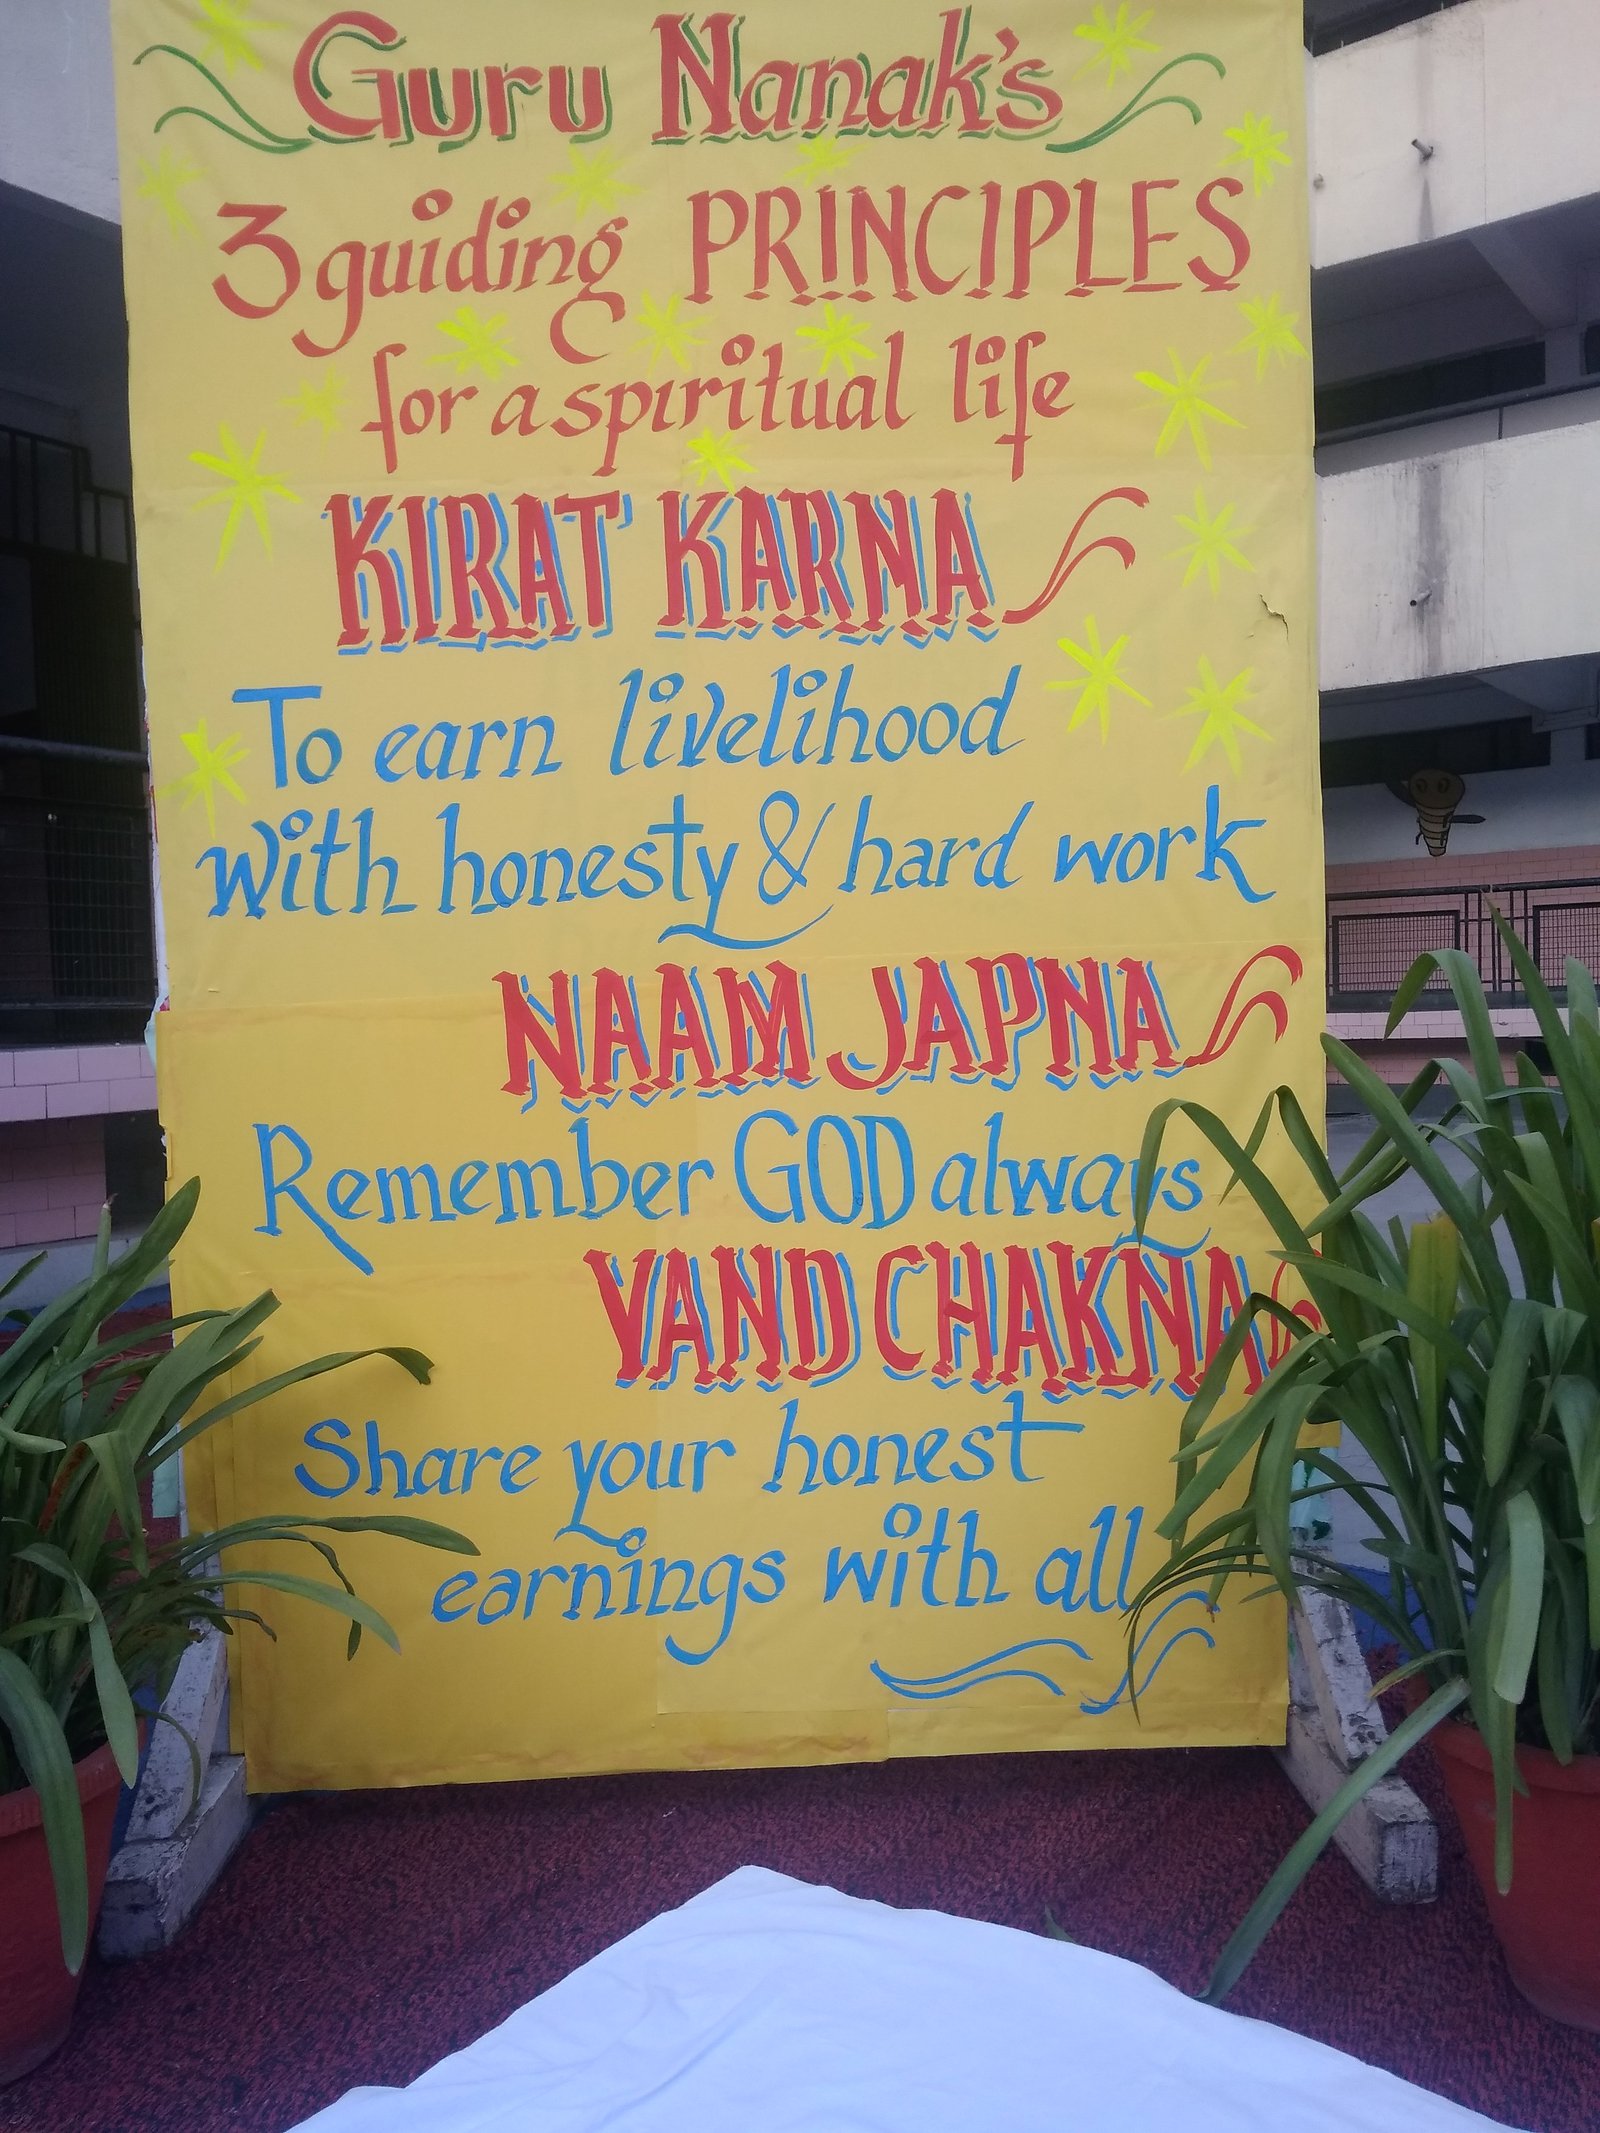 Guru Nanak's
3 guiding PRINCIPLES
for a spiritual life
KIRAT KARNA
To earn livelihood
with honesty & hard work
NAAM JAPNA
Remember GOD always
VAND CHAKNA
Share your honest
earnings with all